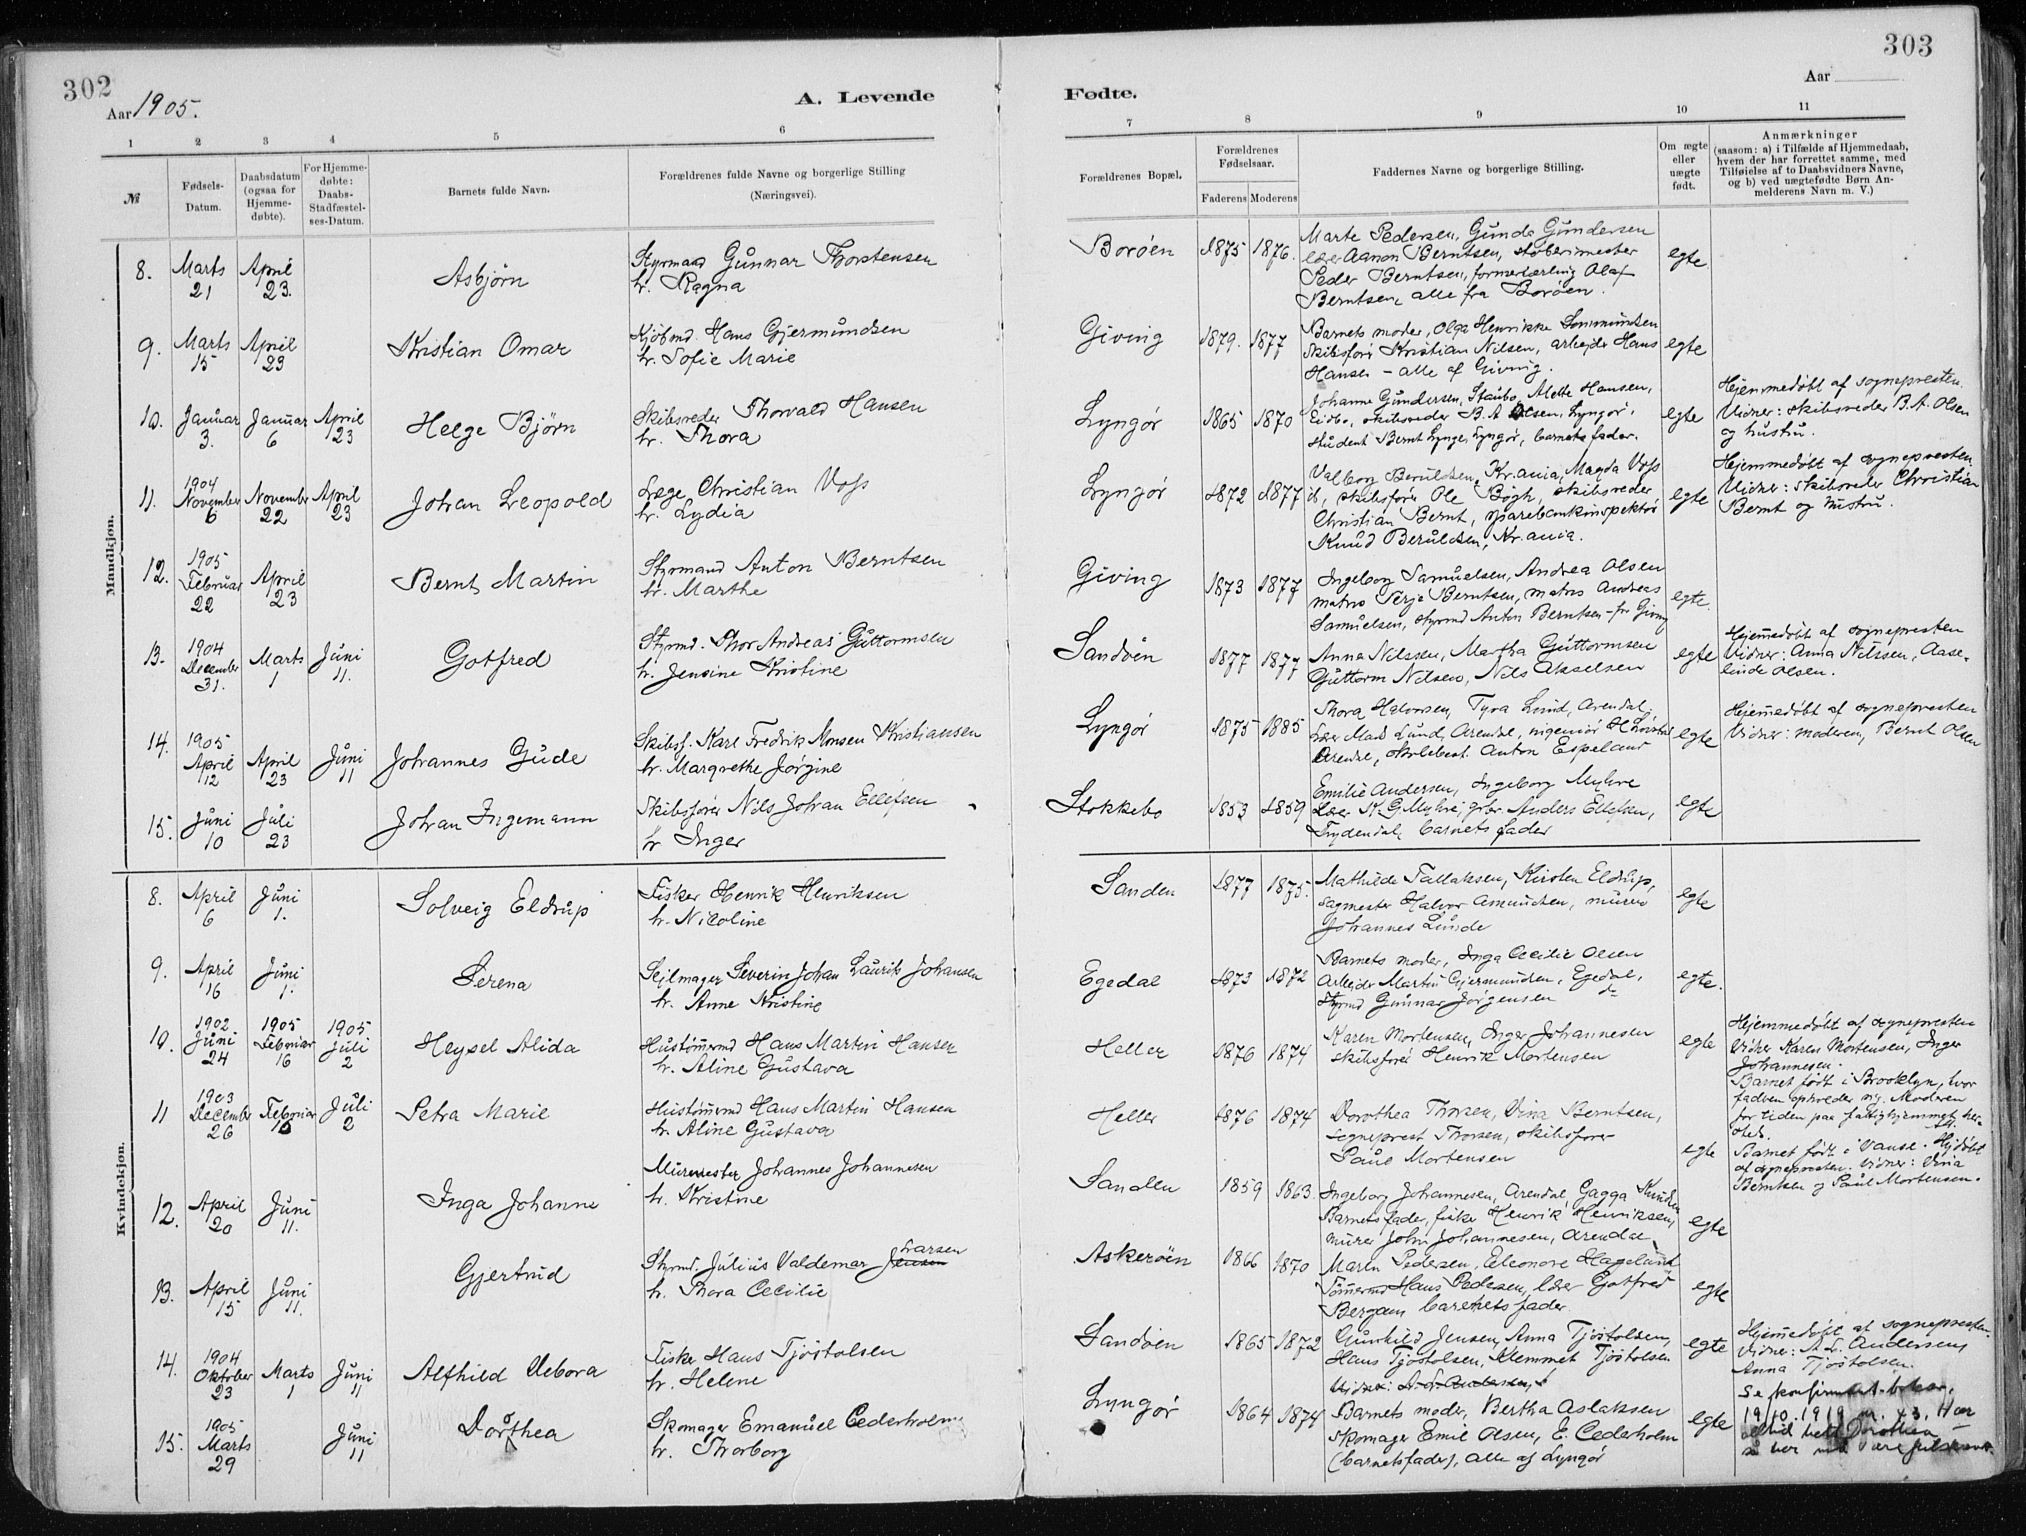 302
303
Aar 1905.
A. Levende
Fødte.
Aar
1 2 3 4 5 6
7 8 9 10 11
№
Fødsels-Datum.
Daabsdatum (ogsaa for Hjemmedøbte).
For Hjemmedøbte: Daabs-Stadfæstelses-Datum.
Barnets fulde Navn.
Forældrenes fulde Navne og borgerlige Stilling (Næringsvei).
Forældrenes Bopæl.
Forældrenes Fødselsaar.
Faderens Moderens
Faddernes Navne og borgerlige Stilling.
Om ægte eller uægte født.
Anmærkninger
(saasom: a) i Tilfælde af Hjemmedaab,
hvem der har forrettet samme, med
Tilføielse af to Daabsvidners Navne,
og b) ved uægtefødte Børn An-
melderens Navn m. V.)
Mandkjøn.
8. Marts 21 April 23. Asbjørn
Styrmand Gunnar Thorstensen
h. Ragna
Borøen 1875 1876.
Marte Pedersen, Gunda Gundersen
lærer Aanon Berntsen, støberimester
Peder Berntsen, formerlærling Olaf
Berntsen, alle fra Borøen.
egte
9. Marts 15 April 23 Kristian Omar
Kjøbmd. Hans Gjermundsen
h. Sofie Marie
Giving 1879. 1877
Barnets moder, Olga Henrikke
Skibsfører Kristian Nilsen, arbejder Hans
Hansen - alle af Giving.
egte
10. Januar 3. Januar 6 April 23 Helge Bjørn
Skibsreder Thorvald Hansen
h. Thora
Lyngør 1865 1870
Johanne Gundersen, Staubo, Alette Hansen,
Eidbo, skibsreder B.A Olsen, Lyngør,
student Bernt Lynge, Lyngør, barnets fader.
egte
Hjemmedøbt af sognepresten.
Vidner: skibsreder B.A. Olsen
og hustru.
11. 1904 November 6 November 22 April 23 Johan Leopold
Læge Christian Voss
h. Lydia
Lyngør 1872 1877
Valborg Beruldsen, Kr.ania, Magda Voss
ib, skibsfører Ole Bøgh, skibsreder
Christian Bernt, sparebankinspektør
Knud Beruldsen, Kr.ania.
egte
Hjemmedøbt af sognepresten.
Vidner: skibsreder Christian
Bernt og hustru.
12. 1905 Februar 22 April 23 Bernt Martin
Styrmand Anton Berntsen
h. Marthe
Giving 1873 1877
Ingeborg Samuelsen, Andrea Olsen
matros Terje Berntsen, matros Andreas
Samuelsen, styrmd Anton Berntsen - fr Giving
egte.
13. 1904 December 31. Marts 1 Juni 11. Gotfred
Styrmd. Thor Andreas Guttormsen
h. Jensine Kristine
Sandøen 1877 1877
Anna Nilssen, Martha Guttormsen
Guttorm Nilsen, Nils Akselsen
egte
Hjemmedøbt af sognepresten
Vidner: Anna Nilssen, Aase-
linde Olsen.
14. 1905 April 12 April 23 Juni 11 Johannes Gude
Skibsf. Karl Fredrik Monsen Kristiansen
h. Margrethe Jørgine
Lyngør 1875 1885
Thora Halvorsen, Tyra Lund, Arendal.
Lærer Mads Lund, Arendal, ingeniør H.
Arendal, Anton Espeland
egte
Hjemmedøbt af sognepresten
Vidner: moderen, Bernt Olsen
15. Juni 10 Juli 23 Johan Ingemann
Skibsfører Nils Johan Ellefsen
h Inger
Stokkebo 1853 1859
Emilie Andersen, Ingeborg Myhre
Lærer K G Myhre, grbr Anders Ellefsen,
Frydendal, barnets fader
egte
Kvindekjøn.
8. April 6 Juni 1. Solveig Eldrup
Fisker Henrik Henriksen
h. Nicoline
Sanden 1877 1875.
Mathilde Tallaksen, Kirsten Eldrup,
sagmester Halvor Amundsen, murer
Johannes Lunde
egte
9. April 16 Juni 1. Serena
Sejlmager Severin Johan Laurits Johansen
h. Anne Kristine
Egedal 1873 1872
Barnets moder, Inga Cecilie Olsen
Arbejder Martin Gjermundsen, Egedal,
Styrmd Gunnar Jørgensen do
egte.
10. 1902 Juni 24 1905 Februar 16 1905 Juli 2 Heysel Alida
Hustømmrmd Hans Martin Hansen
h. Aline Gustava
Heller 1876 1874
Karen Mortensen, Inger Johannesen
skibsfører Henrik Mortensen
egte
Hjemmedøbt af sognepresten
Vidner Karen Mortensen, Inger
Johannesen.
Barnet født i Brooklyn, hvor
fadren opholder sig. Moderen
for tiden paa fattighjemmet her-
steds.
11 1903 December 26 Februar 16 Juli 2 Petra Marie
Hustømmrmd Hans Martin Hansen
h. Aline Gustava
Heller 1876 1874
Dorothea Thorsen, Vina Berntsen,
sogneprest Thorsen, skibsfører
Paul Mortensen
egte
Barnet født i Vanse. Hjdøbt
af sognepresten. Vidner: Vina
Berntsen og Paul Mortensen.
12. April 20 Juni 11. Inga Johanne
Murmester Johannes Johannesen
h. Kristine
Sanden 1859 1863.
Ingeborg Johannesen, Arendal, Gagga Knudsen
Barnets fader, fisker Henrik Henriksen,
murer John Johannesen, Arendal
egte
13. April 15 Juni 11. Gjertrud
Styrmd. Julius Valdemar Jensen Larsen
h. Thora Cecilie
Askerøen 1866 1870
Maren Pedersen, Eleonore Hagelund
Tømmermd Hans Pedersen, lærer Gotfred
Bergam barnets fader.
egte
14. 1904 Oktober 23 Marts 1 Juni 11 Alfhild Debora
Fisker Hans Tjøstolsen
h. Helene
Sandøen 1865 1872
Gunhild Jensen, Anna Tjøstolsen,
Hans Tjøstolsen, Klemmet Tjøstolsen
Vidner: A. L. Andersen,
egte
Hjemmedøbt af sognepresten.
Vidner: A. L. Andersen,
Anna Tjøstolsen.
15. 1905 Marts 29 Juni 11 Dorthea
Skomager Emanuel Cederholm
h. Thorborg
Lyngør 1864 1874
Barnets moder, Bertha Aslaksen
skomager Emil Olsen, E. Cederholm
(barnetsfader), alle af Lyngør
egte
Se konfirmert.
19/10.1919 nr. 43. Har
altid hett Dorothea